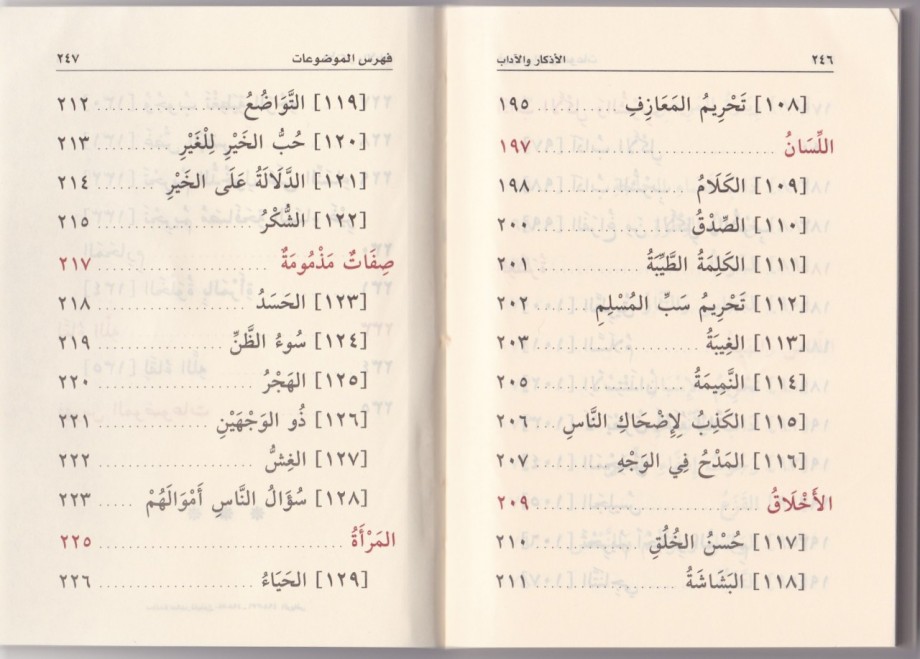 ٢٤٦ الأذكار والآداب
[١٠٨] تَحْرِيمُ المَعَازِفِ ١٩٥
اللِّسَانُ ١٩٧
[١٠٩] الكَلَامُ ١٩٨
[١١٠] الصِّدْقُ ٢٠٠
[١١١] الكَلِمَةُ الطَّيِّبَةُ ٢٠١
[١١٢] تَحْرِيمُ سَبِّ المُسْلِمِ ٢٠٢
[١١٣] الغِيبَةُ ٢٠٣
[١١٤] النَّمِيمَةُ ٢٠٥
[١١٥] الكَذِبُ لِإِضْحَاكِ النَّاسِ ٢٠٦
[١١٦] المَدْحُ فِي الوَجْهِ ٢٠٧
الأَخْلَاقُ ٢٠٩
[١١٧] حُسْنُ الخُلُقِ ٢١٠
[١١٨] البَشَاشَةُ ٢١١
فهرس الموضوعات ٢٤٧
[١١٩] التَّوَاضُعُ ٢١٢
[١٢٠] حُبُّ الخَيْرِ لِلْغَيْرِ ٢١٣
[١٢١] الدَّلَالَةُ عَلَى الخَيْرِ ٢١٤
[١٢٢] الشُّكْرُ ٢١٥
صِفَاتٌ مَذْمُومَةٌ ٢١٧
[١٢٣] الحَسَدُ ٢١٨
[١٢٤] سُوءُ الظَّنِّ ٢١٩
[١٢٥] الهَجْرُ ٢٢٠
[١٢٦] ذُو الوَجْهَيْنِ ٢٢١
[١٢٧] الغِشُّ ٢٢٢
[١٢٨] سُؤَالُ النَّاسِ أَمْوَالَهُمْ ٢٢٣
المَرْأَةُ ٢٢٥
[١٢٩] الحَيَاءُ ٢٢٦